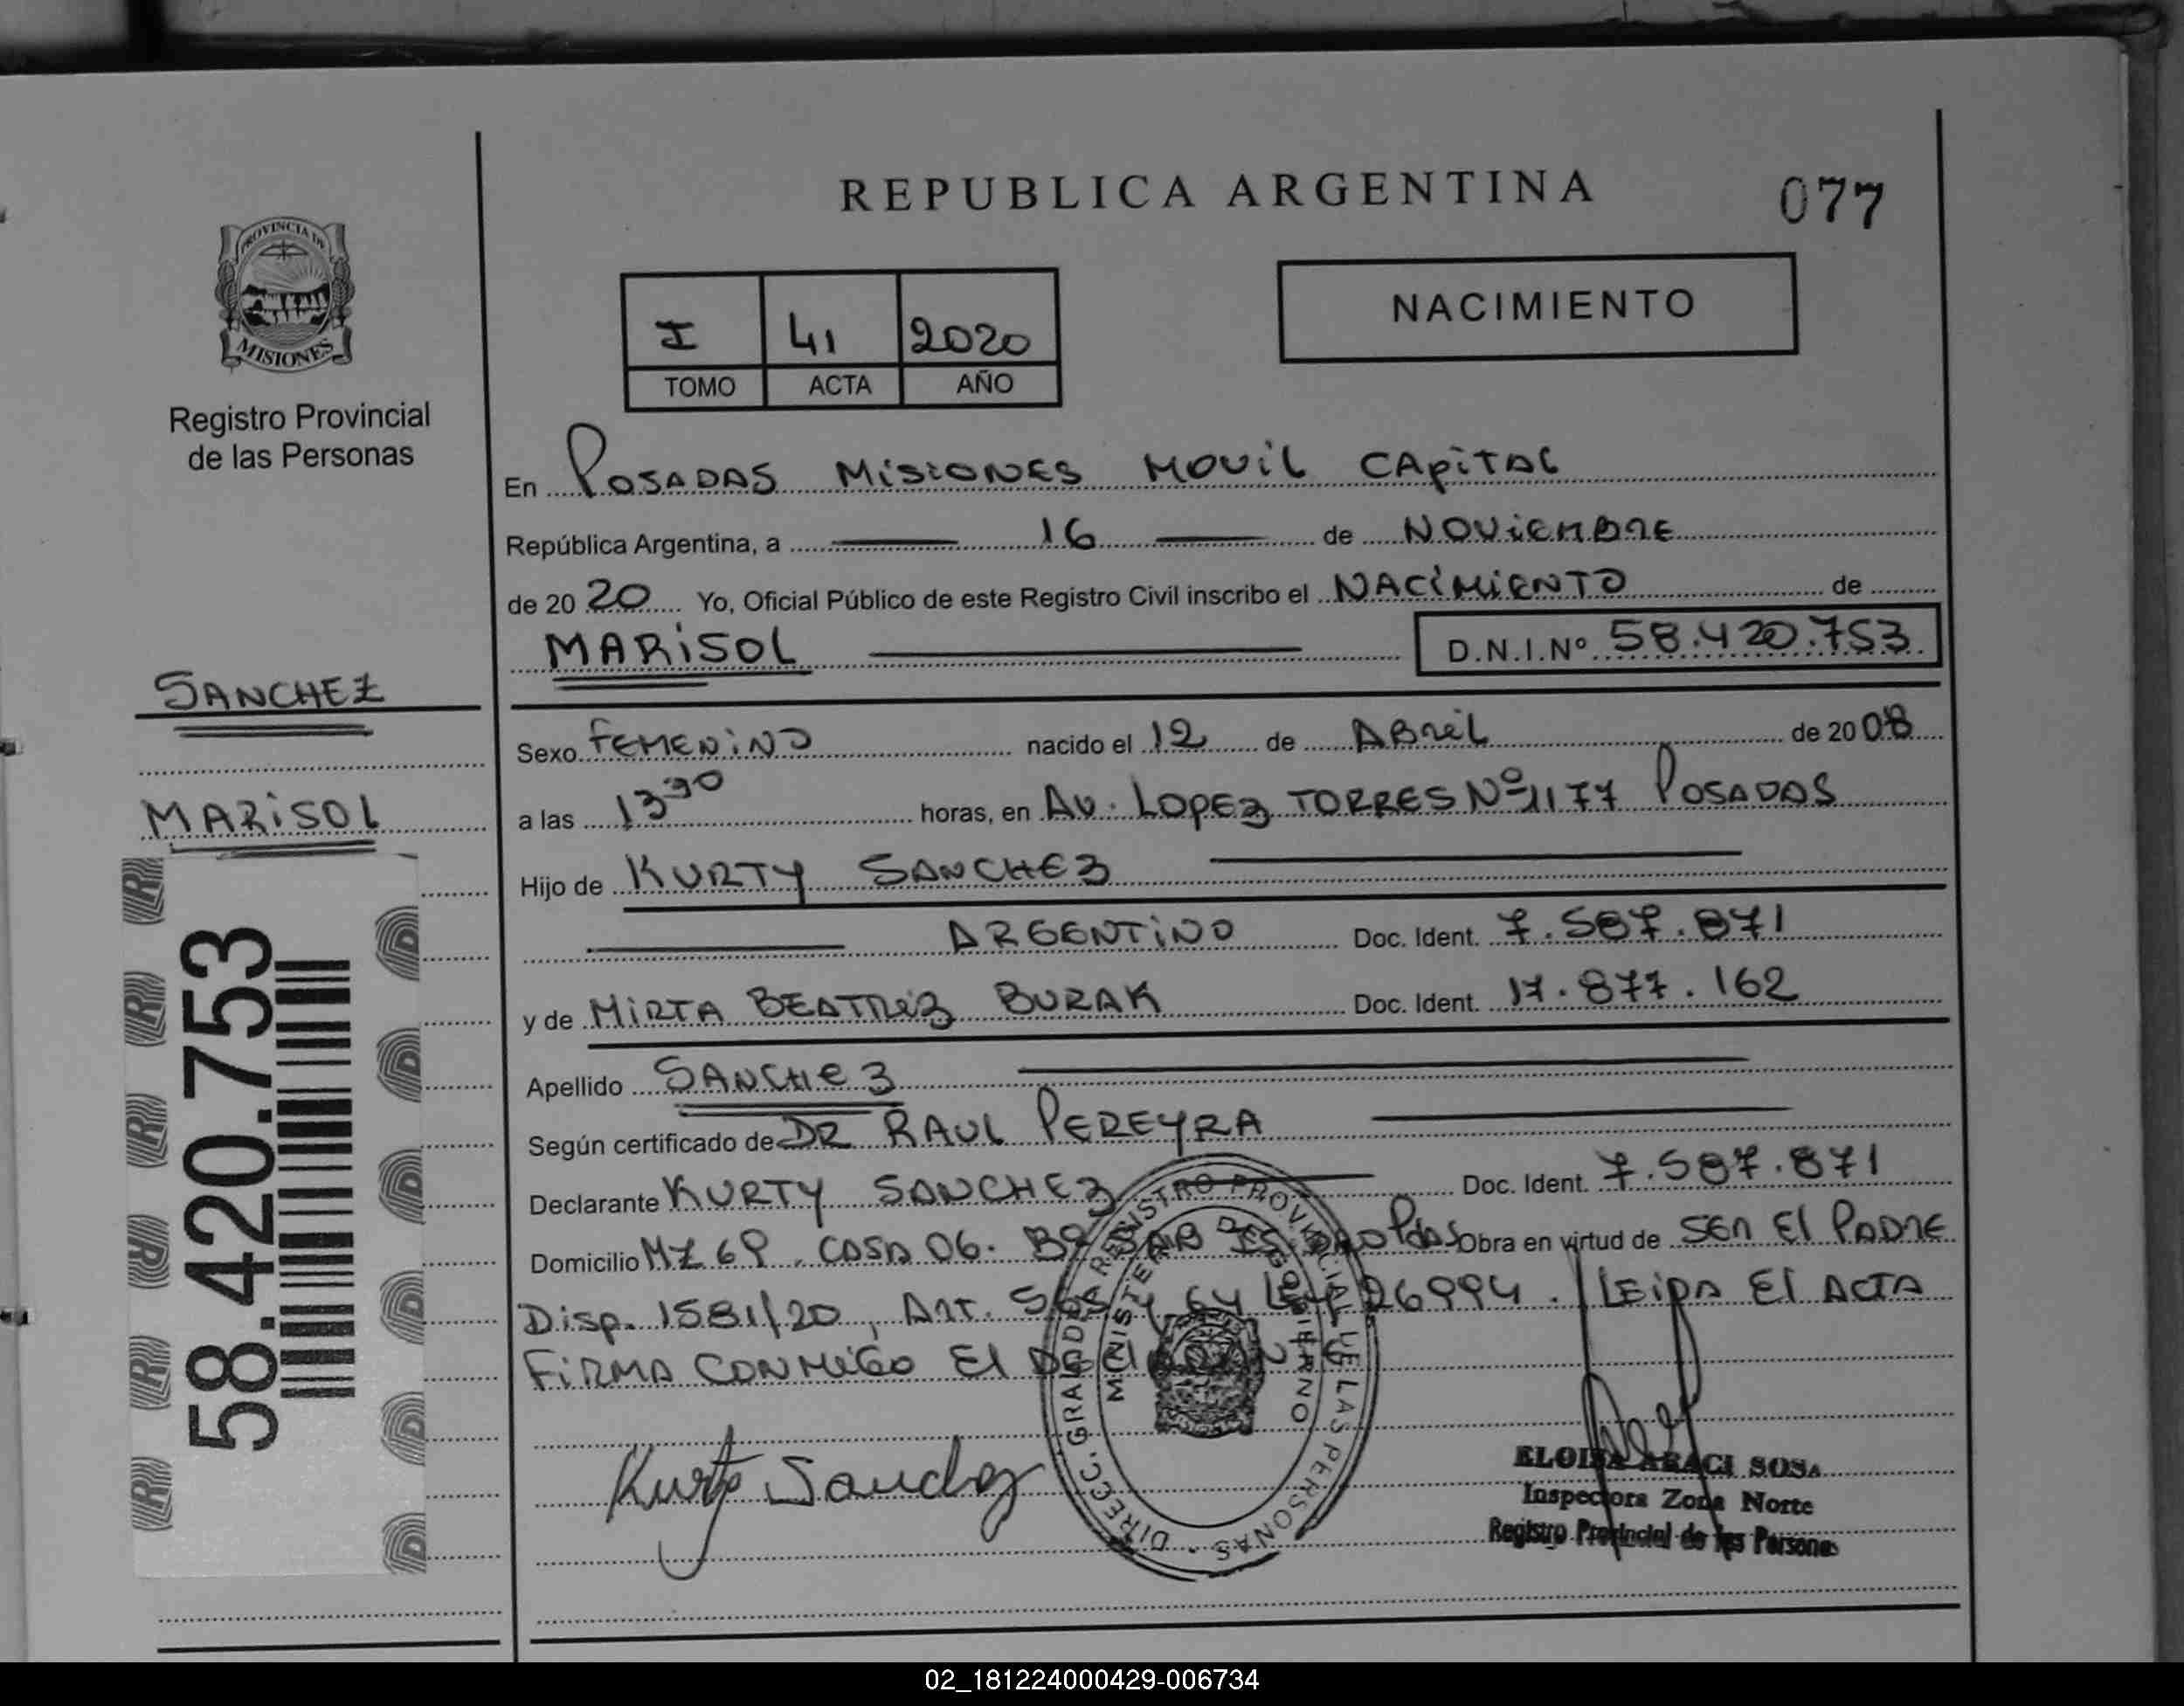 REPUBLICA ARGENTINA
077
PROVINCIA DE
MISIONES
Registro Provincial
de las Personas
I 41 2020
TOMO ACTA AÑO
NACIMIENTO
En POSADAS MISIONES MOVIL CAPITAL
República Argentina, a 16 de NOVIEMBRE
de 20 20 Yo, Oficial Público de este Registro Civil inscribo el NACIMIENTO de
MARISOL D.N.I.Nº 58.420.753
SANCHEZ
MARISOL
58.420.753
Sexo FEMENINO nacido el 12 de ABRIL de 20 08
a las 13 30 horas, en AV. LOPEZ TORRES Nº 1177 POSADAS
Hijo de KURTY SANCHEZ
ARGENTINO Doc. Ident. 7.587.871
y de MIRTA BEATRIZ BURAK Doc. Ident. 17.877.162
Apellido SANCHEZ
Según certificado de DR RAUL PEREYRA
Declarante KURTY SANCHEZ Doc. Ident. 7.587.871
Domicilio MZ 69, CASA 06. Bº SAN Pdas Obra en virtud de SER EL PADRE
Disp. 1581/20, ART. LEY 26994. LEIDA EL ACTA
FIRMA CONMIGO EL DECLARANTE
Kurty Sanchez
DIRECC. GRAL. DE REGISTRO PROVINCIAL DE LAS PERSONAS
MINISTERIO DE GOBIERNO
ELOISA ARACI SOSA
Inspectora Zona Norte
Registro Provincial de las Personas
02_181224000429-006734